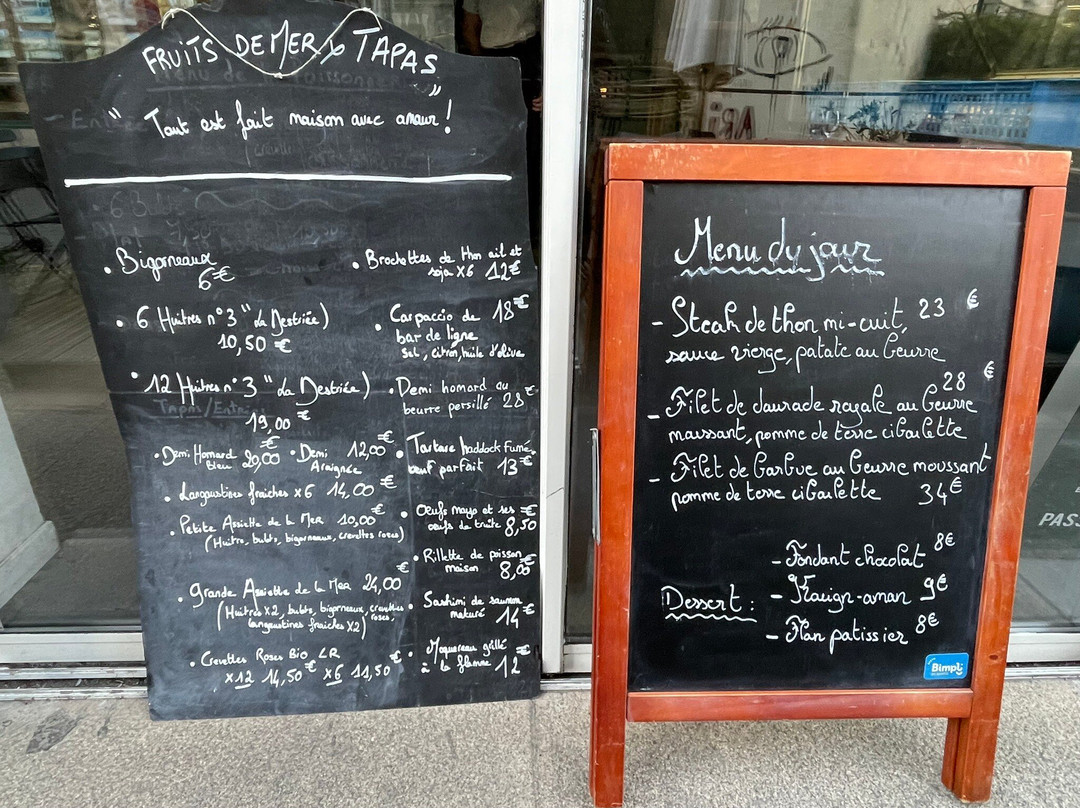 FRUITS DE MER & TAPAS
" Tout est fait maison avec amour ! "
• Bigorneaux
6€
• 6 Huîtres n°3 "La Destriée)
10,50 €
• 12 Huîtres n°3 "La Destriée)
19,00 €
• Demi Homard
Bleu 20,00 €
• Demi 12,00 €
Araignée
• Langoustines fraîches x6 14,00 €
• Petite Assiette de la Mer 10,00 €
(Huître, bulots, bigorneaux, crevettes roses)
• grande Assiette de la Mer 24,00 €
(Huîtres x2, bulots, bigorneaux, crevettes roses,
langoustines fraîches x2)
• Crevettes Roses Bio LR
x12 14,50 € x6 11,50 €
• Brochettes de thon ail et
soja x6 12€
• Carpaccio de 18€
bar de ligne
Sel, citron, huile d'olive
• Demi homard au
beurre persillé 28€
• Tartare haddock Fumé,
oeuf parfait 13€
• Oeufs mayo et ses
oeufs de truite 8,50 €
• Rillette de poisson
maison 8,00 €
• Sashimi de saumon
maturé 14 €
• Maquereau grillé
à la flamme 12 €
Menu du jour
- Steak de thon mi-cuit, 23 €
sauce vierge, patate au beurre
28 €
- Filet de daurade royale au beurre
moussant, pomme de terre ciboulette
- Filet de barbue au beurre moussant
pomme de terre ciboulette 34€
Dessert :
- Fondant chocolat 8€
- Kouign-aman 9€
- Flan patissier 8€
Bimpli
PASS